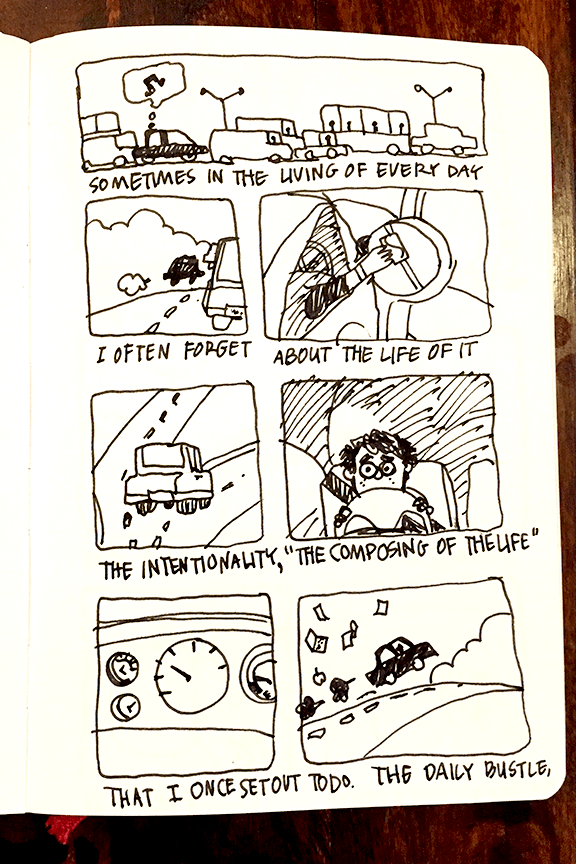 SOMETIMES IN THE LIVING OF EVERY DAY
I OFTEN FORGET
ABOUT THE LIFE OF IT
THE INTENTIONALITY, "THE COMPOSING OF THE LIFE"
THAT I ONCE SET OUT TO DO. THE DAILY BUSTLE,